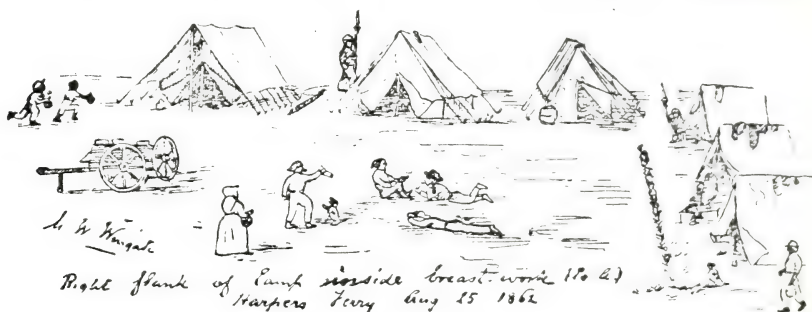 G W Wingate
Right flank of Camp inside breast-work (Co A)
Harpers Ferry Aug 25 1862